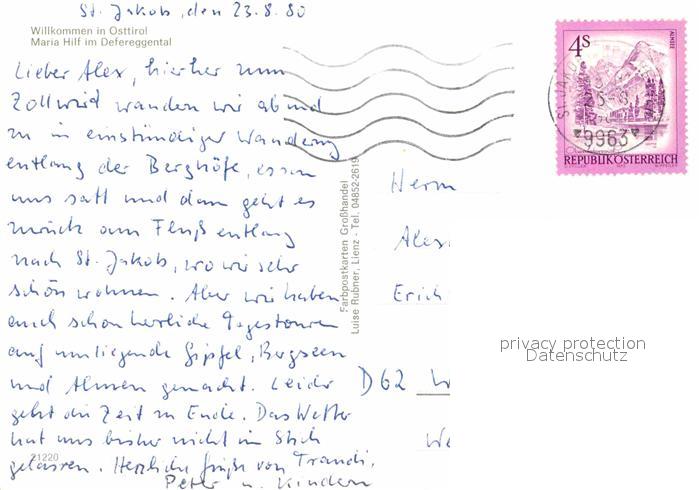 St. Jakob, den 23.8.80
Willkommen in Osttirol
Maria Hilf im Defereggental
Lieber Alex, hierher zum
Zollwirt wandern wir ab und
zu in einstündiger Wanderung
entlang der Berghöfe, essen
uns satt und dann geht es
zurück am Fluß entlang
nach St. Jakob, wo wir sehr
schön wohnen. Aber wir haben
auch schon herrliche Tagestouren
auf umliegende Gipfel, Bergseen
und Almen gemacht. Leider
geht die Zeit zu Ende. Das Wetter
hat uns bisher nicht im Stich
gelassen. Herzliche Grüße von Traudi,
Peter u. Kindern
21220
Farbpostkarten Großhandel
Luise Rubner, Lienz - Tel. 04852-2619
4S
ALMSEE
ST. JAKO
9963
REPUBLIK ÖSTERREICH
Herrn
Alex
Erich
D 62 W
We
privacy protection
Datenschutz